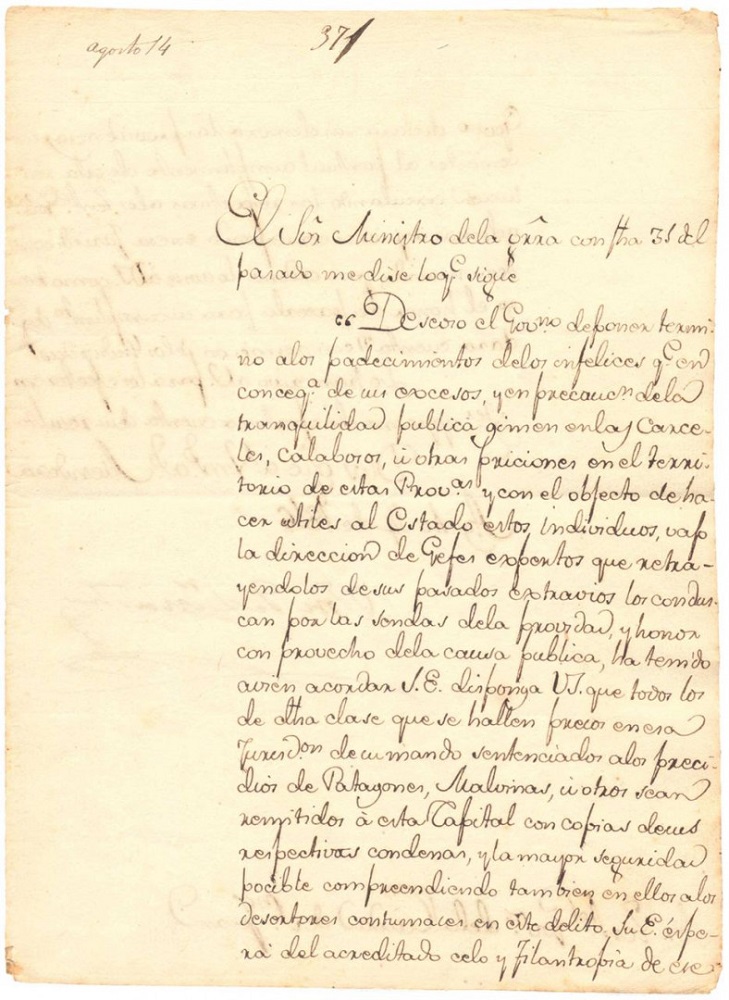 agosto 14
371
El Sõr Ministro dela grra con fha 31 del
pasado me dise loq.e sigue
"Deseoso el Gov.no deponer termi-
no alos padecimientos delos infelices q.e en
conceq.a de sus excesos, y en precauc.n dela
tranquilidad publica gimen enlas Carce-
les, calabosos, ù otras priciones en el terri-
torio de estas Prov.as y con el objecto de ha-
cer utiles al Estado estos individuos, vajo
la direccion de Gefes expertos que retra-
yendolos desus pasados extravios los condus-
can por las sendas dela providad, y honor
con provecho dela causa publica, ha tenido
avien acordar S.E. disponga VS. que todos los
de dha clase que se hallen presos en esa
Jurisd.on desu mando sentenciados alos preci-
dios de Patagones, Malvinas, ù otros sean
remitidos à esta Capital con copias desus
respectivas condenas, y la mayor seguridad
pocible compreendiendo tambien en ellos alos
desertores contumaces en este delito. Su E. éspe-
ra del acreditado celo y filantropia de ese